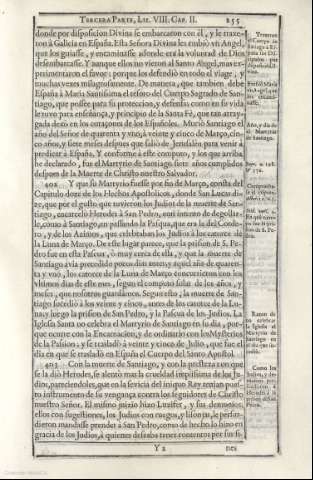 TERCERA PARTE, LIB. VIII. CAP. II. 255
donde por disposicion Divina se embarcaron con èl, y le traxe-
ron à Galicia en España. Esta Señora Divina les embiò vn Angel,
que los guiasse, y encaminasse adonde era la voluntad de Dios
desembarcasse. Y aunque ellos no vieron al Santo Angel, mas ex-
perimentaron el favor: porque los defendiò en todo el viage, y
muchas vezes milagrosamente. De manera, que tambien debe
España à Maria Santissima el tesoro del Cuerpo Sagrado de San-
tiago, que possee para su proteccion, y defensa, como en su vida
le tuvo para enseñança, y principio de la Santa Fè, que tan array-
gada dexò en los coraçones de los Españoles. Muriò Santiago el
año del Señor de quarenta y vno, à veinte y cinco de Março, cin-
co años, y siete meses despues que saliò de Jerusalèn para venir à
predicar à España. Y conforme à este computo, y los que arriba
he declarado, fue el Martyrio de Santiago, siete años cumplidos
despues de la Muerte de Christo nuestro Salvador.
402 Y que su Martyrio fuesse por fin de Março, consta del
Capitulo doze de los Hechos Apostolicos, donde San Lucas di-
ze, que por el gusto que tuvieron los Judios de la muerte de San-
tiago, encarcelò Herodes à San Pedro, con intento de degollar-
le, como à Santiago, en passando la Pasqua, que era la del Corde-
ro, y de los Azimos, que celebraban los Judios à los catorze de
la Luna de Março. De este lugar parece, que la prision de S. Pe-
dro fue en esta Pasqua, ò muy cerca de ella, y que la muerte de
Santiago avia precedido pocos dias antes, y aquel año de quaren-
ta y vno, los catorze de la Luna de Março concurrieron con los
vltimos dias de este mes, segun el computo solar de los años, y
meses, que nosotros guardamos. Segun esto, la muerte de San-
tiago sucediò à los veinte y cinco, antes de los catorze de la Lu-
na, y luego la prision de San Pedro, y la Pascua de los Judios. La
Iglesia Santa no celebra el Martyrio de Santiago en su dia, por-
que ocurre con la Encarnacion, y de ordinario con los Mysterios
de la Passion; y se trasladò à veinte y cinco de Julio, que fue el
dia en que se trasladò en España el Cuerpo del Santo Apostol.
403 Con la muerte de Santiago, y con la presteza con que
se la diò Herodes, se alentò mas la crueldad impiissima de los Ju-
dios, pareciendoles, que en la sevicia del iniquo Rey tenian pues-
to instrumento de su vengança contra los seguidores de Christo
nuestro Señor. El mismo juizio hizo Luzifer, y sus demonios;
ellos con sugestiones, los Judios con ruegos, y lisonjas, le persua-
dieron mandasse prender à San Pedro, como de hecho lo hizo en
gracia de los Judios, à quienes deseaba tener contentos por sus fi-
Y 2 nes